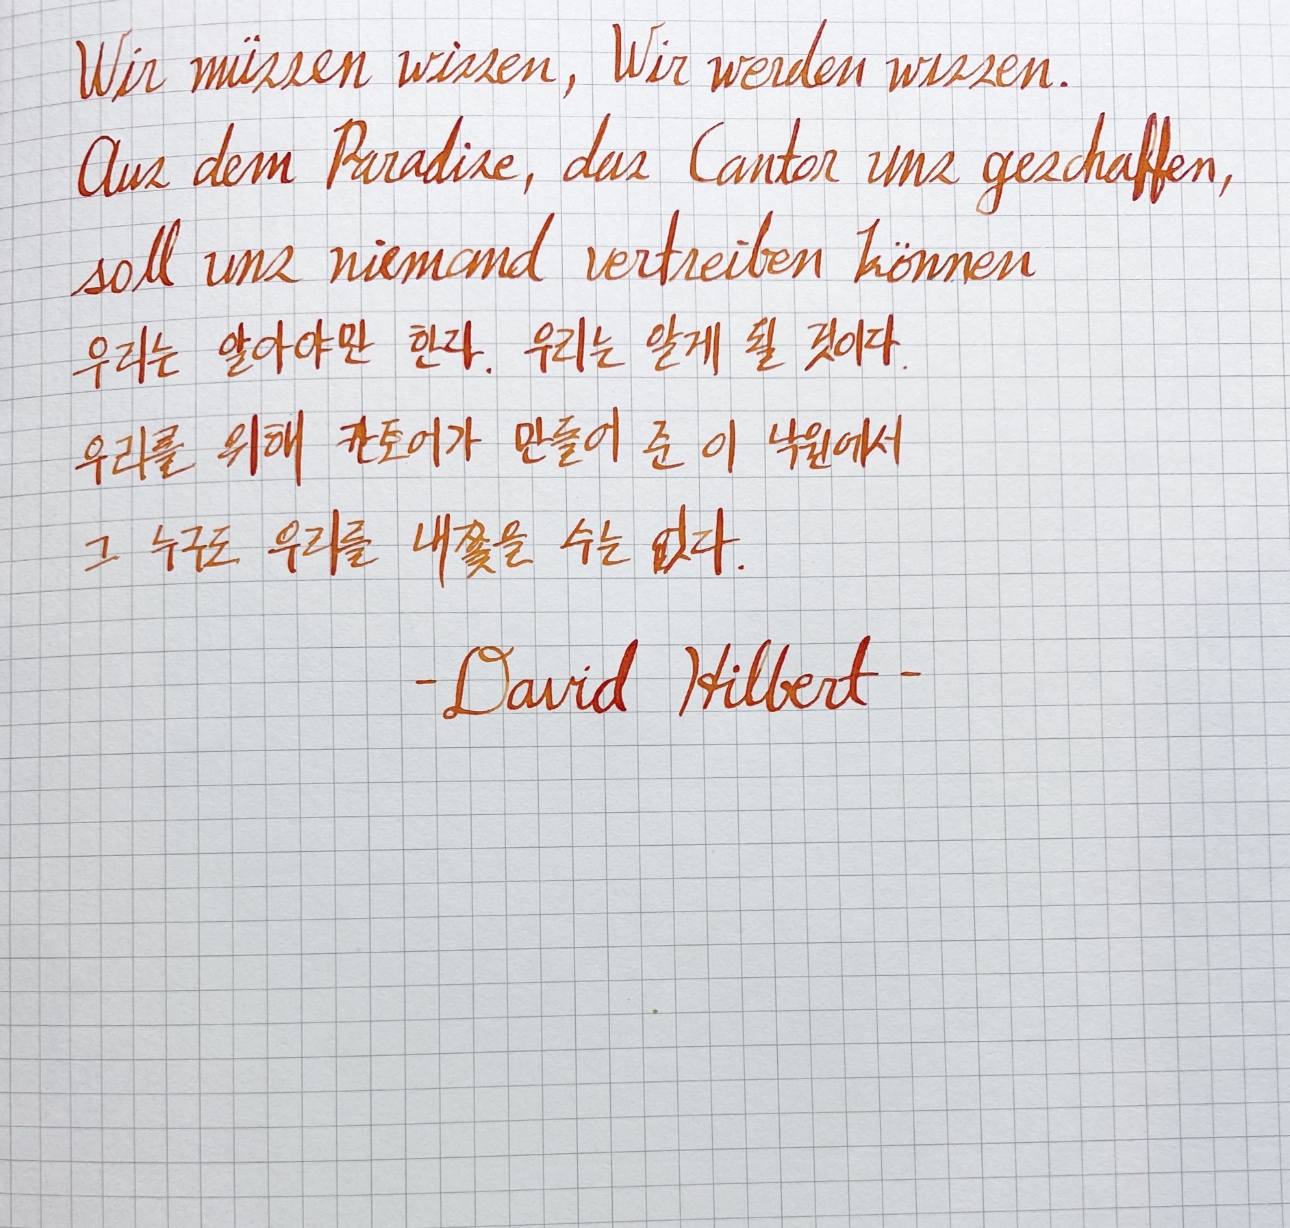 Wir müssen wissen, Wir werden wissen.
Aus dem Paradise, das Cantor uns geschaffen,
soll uns niemand vertreiben können
우리는 알아야만 한다. 우리는 알게 될 것이다.
우리를 위해 칸토어가 만들어 준 이 낙원에서
그 누구도 우리를 내쫓을 수는 없다.
- David Hilbert -